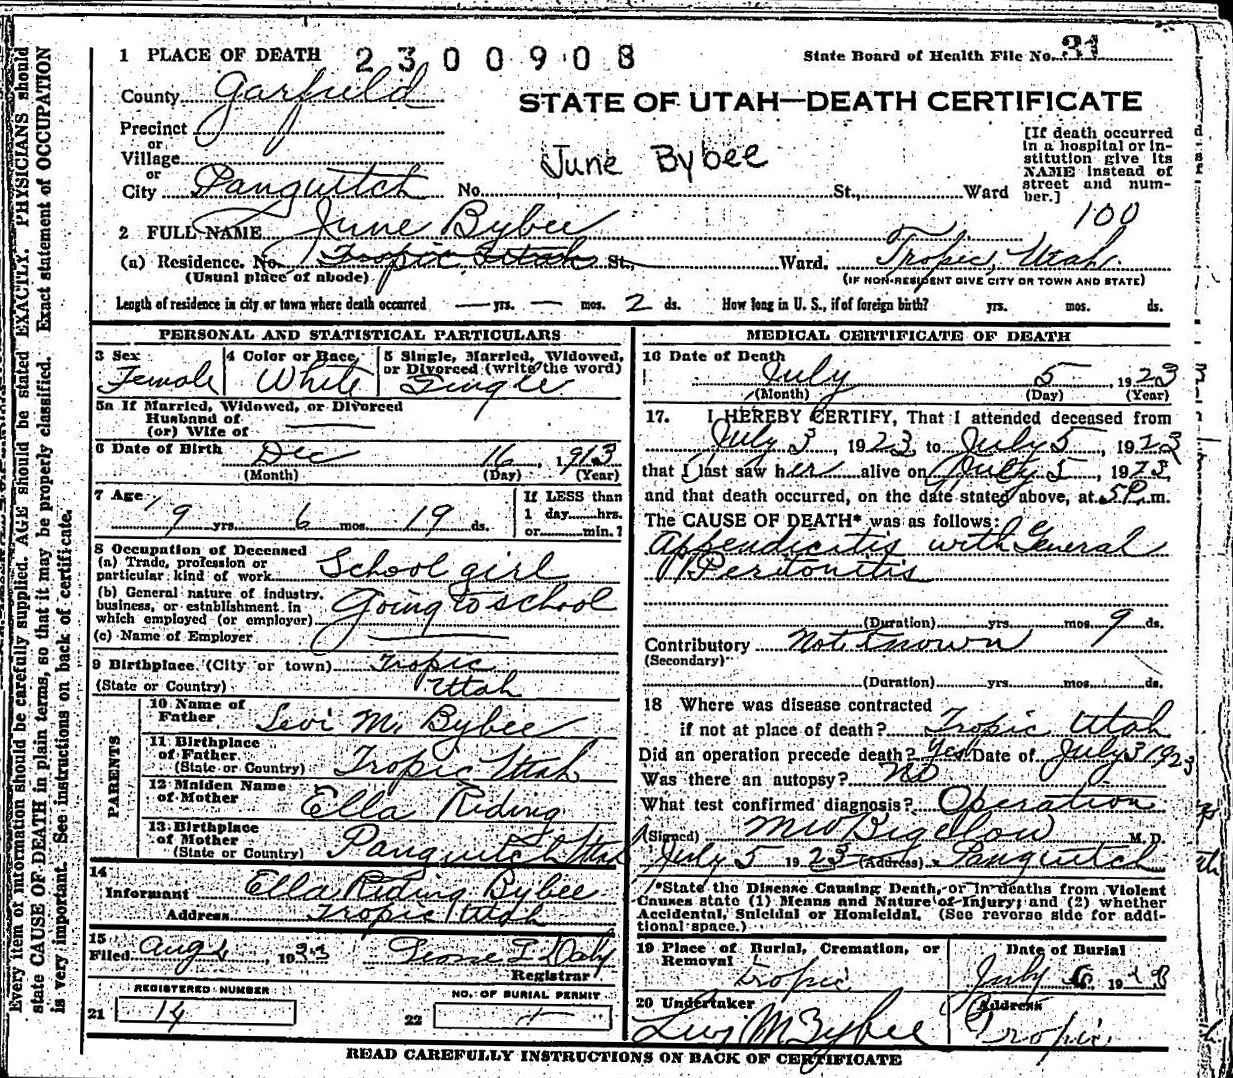 1 PLACE OF DEATH 2300908 State Board of Health File No. 31
County Garfield STATE OF UTAH—DEATH CERTIFICATE
Precinct
or
Village
or
City Panguitch No. St., Ward
[If death occurred in a hospital or institution give its NAME instead of street and number.]
June Bybee
100
2 FULL NAME June Bybee
(a) Residence. No. Tropic Utah St., Ward. Tropic, Utah.
(Usual place of abode) (IF NON-RESIDENT GIVE CITY OR TOWN AND STATE)
Length of residence in city or town where death occurred — yrs. — mos. 2 ds. How long in U. S., if of foreign birth? yrs. mos. ds.
PERSONAL AND STATISTICAL PARTICULARS
3 Sex Female
4 Color or Race White
5 Single, Married, Widowed, or Divorced (write the word) Single
5a If Married, Widowed, or Divorced
Husband of
(or) Wife of
6 Date of Birth Dec 16, 1913
(Month) (Day) (Year)
7 Age 9 yrs. 6 mos. 19 ds.
If LESS than
1 day hrs.
or min.?
8 Occupation of Deceased
(a) Trade, profession or
particular kind of work School girl
(b) General nature of industry,
business, or establishment in
which employed (or employer) Going to school
(c) Name of Employer
9 Birthplace (City or town) Tropic
(State or Country) Utah
PARENTS
10 Name of
Father Levi M. Bybee
11 Birthplace
of Father
(State or Country) Tropic Utah
12 Maiden Name
of Mother Ella Riding
13 Birthplace
of Mother
(State or Country) Panguitch Utah
14
Informant Ella Riding Bybee
Address Tropic Utah
15
Filed Aug 4, 1923
Registrar
REGISTERED NUMBER NO. OF BURIAL PERMIT
21 14 22
MEDICAL CERTIFICATE OF DEATH
16 Date of Death
July 5, 1923
(Month) (Day) (Year)
17. I HEREBY CERTIFY, That I attended deceased from
July 3, 1923, to July 5, 1923
that I last saw her alive on July 5, 1923,
and that death occurred, on the date stated above, at 5 P. m.
The CAUSE OF DEATH* was as follows:
Appendicitis with General
Peritonitis
(Duration) yrs. mos. 9 ds.
Contributory Not known
(Secondary)
(Duration) yrs. mos. ds.
18 Where was disease contracted
if not at place of death? Tropic Utah
Did an operation precede death? Yes Date of July 3 1923
Was there an autopsy? No
What test confirmed diagnosis? Operation
(Signed) M W Bigelow M. D.
July 5 1923 (Address) Panguitch
*State the Disease Causing Death, or in deaths from Violent
Causes state (1) Means and Nature of Injury; and (2) whether
Accidental, Suicidal or Homicidal. (See reverse side for additional space.)
19 Place of Burial, Cremation, or
Removal Tropic
Date of Burial
July 6 1923
20 Undertaker
Levi M Bybee
Address
Tropic
READ CAREFULLY INSTRUCTIONS ON BACK OF CERTIFICATE
Every item of information should be carefully supplied. AGE should be stated EXACTLY. PHYSICIANS should
state CAUSE OF DEATH in plain terms, so that it may be properly classified. Exact statement of OCCUPATION
is very important. See instructions on back of certificate.